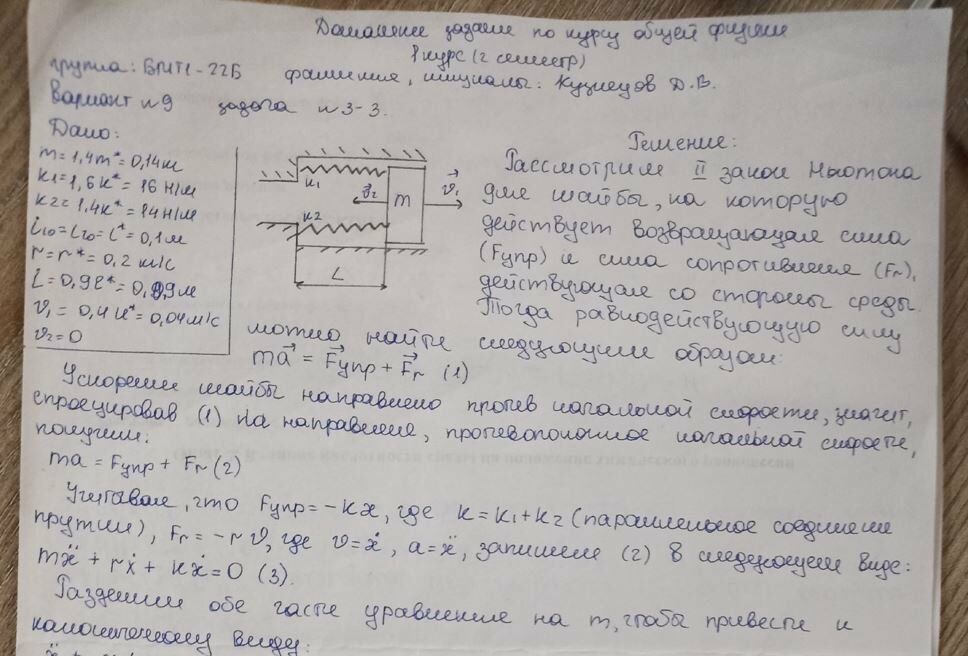 Домашнее задание по курсу общей физики
1 курс (2 семестр)
группа: БМТ1-22Б фамилия, инициалы: Кузнецов Д.В.
Вариант №9 задача №3-3.
Дано:
m=1,4m*=0,14кг
k1=1,6k*=16 Н/м
k2=1,4k*=14Н/м
L10=L20=L*=0,1м
r=r*=0,2 кг/с
L=0,9l*=0,09м
v1=0,4u*=0,04м/с
v2=0
k1
v2
m
v1
k2
L
Решение:
Рассмотрим II закон Ньютона
для шайбы, на которую
действует возвращающая сила
(Fупр) и сила сопротивления (Fr),
действующая со стороны среды.
Тогда равнодействующую силу
можно найти следующим образом:
ma = Fупр + Fr (1)
Ускорение шайбы направлено против начальной скорости, значит,
спроецировав (1) на направление, противоположное начальной скорости,
получим:
ma = Fупр + Fr (2)
Учитывая, что Fупр=-kx, где k=k1+k2 (параллельное соединение
пружин), Fr=-rv, где v=ẋ, a=ẍ, запишем (2) в следующем виде:
mẍ + rẋ + kx=0 (3).
Разделим обе части уравнения на m, чтобы привести к
каноническому виду: